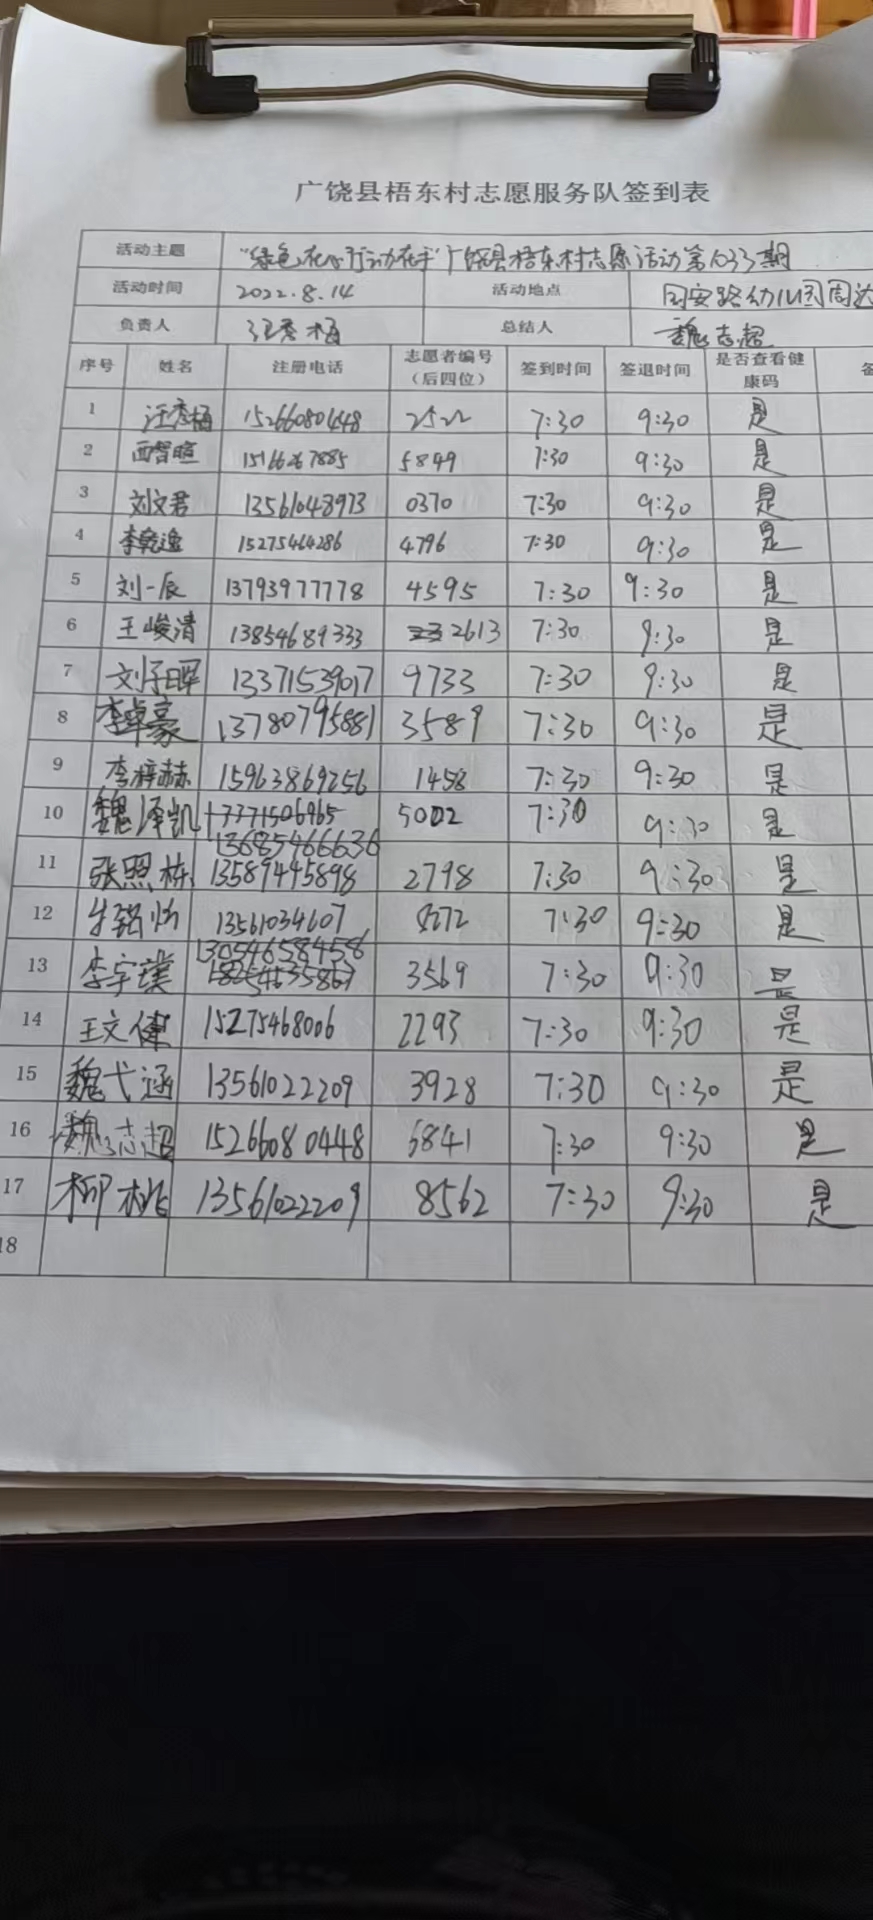 广饶县梧东村志愿服务队签到表
活动主题 "绿色在心行动在手"广饶县梧东村志愿活动第1033期
活动时间 2022.8.14 活动地点 同安路幼儿园周边
负责人 汪秀梅 总结人 魏志超
序号 姓名 注册电话 志愿者编号（后四位） 签到时间 签退时间 是否查看健康码 备
1 汪秀梅 15266080448 2522 7:30 9:30 是
2 西智暄 15166267885 5849 7:30 9:30 是
3 刘文君 13561048973 0370 7:30 9:30 是
4 李乾逸 15275464286 4796 7:30 9:30 是
5 刘一辰 13793977778 4595 7:30 9:30 是
6 王峻清 13854689333 2613 7:30 9:30 是
7 刘子晖 13371539017 9733 7:30 9:30 是
8 李卓豪 13780795881 3589 7:30 9:30 是
9 李梓赫 15963869256 1458 7:30 9:30 是
10 魏泽凯 17771506965 5002 7:30 9:30 是
13685466636
11 张照栋 13589445898 2798 7:30 9:30 是
12 13561034607 8272 7:30 9:30 是
13054658458
13 李宇璞 18254635867 3569 7:30 9:30 是
14 王文健 15275468006 2293 7:30 9:30 是
15 魏弋涵 13561022209 3928 7:30 9:30 是
16 魏志超 15266080448 6841 7:30 9:30 是
17 柳桃 13561022209 8562 7:30 9:30 是
18